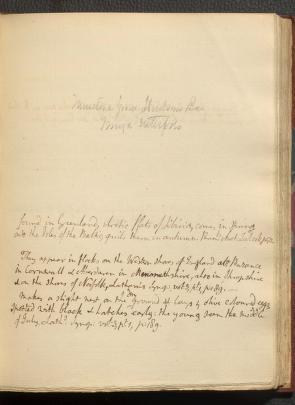 from Hudsons Bay
found in Greenland, Arctic flats of Siberia, come in Spring
into the Isles of the Baltic, quits them in autumn.
They appear in flocks, on the Western shores of England abt
in Cornwall & Aberdaron in shire, also in Shropshire
& on the shores of Norfolk, Latham's Synop: vol: 3, pt: 1, p: 189.
makes a slight nest on the dry ground & lays 4 olive coloured eggs
spotted with black & hatches early: the young seen the middle
of July. Lath: Synop: vol: 3, pt: 1, p: 189.